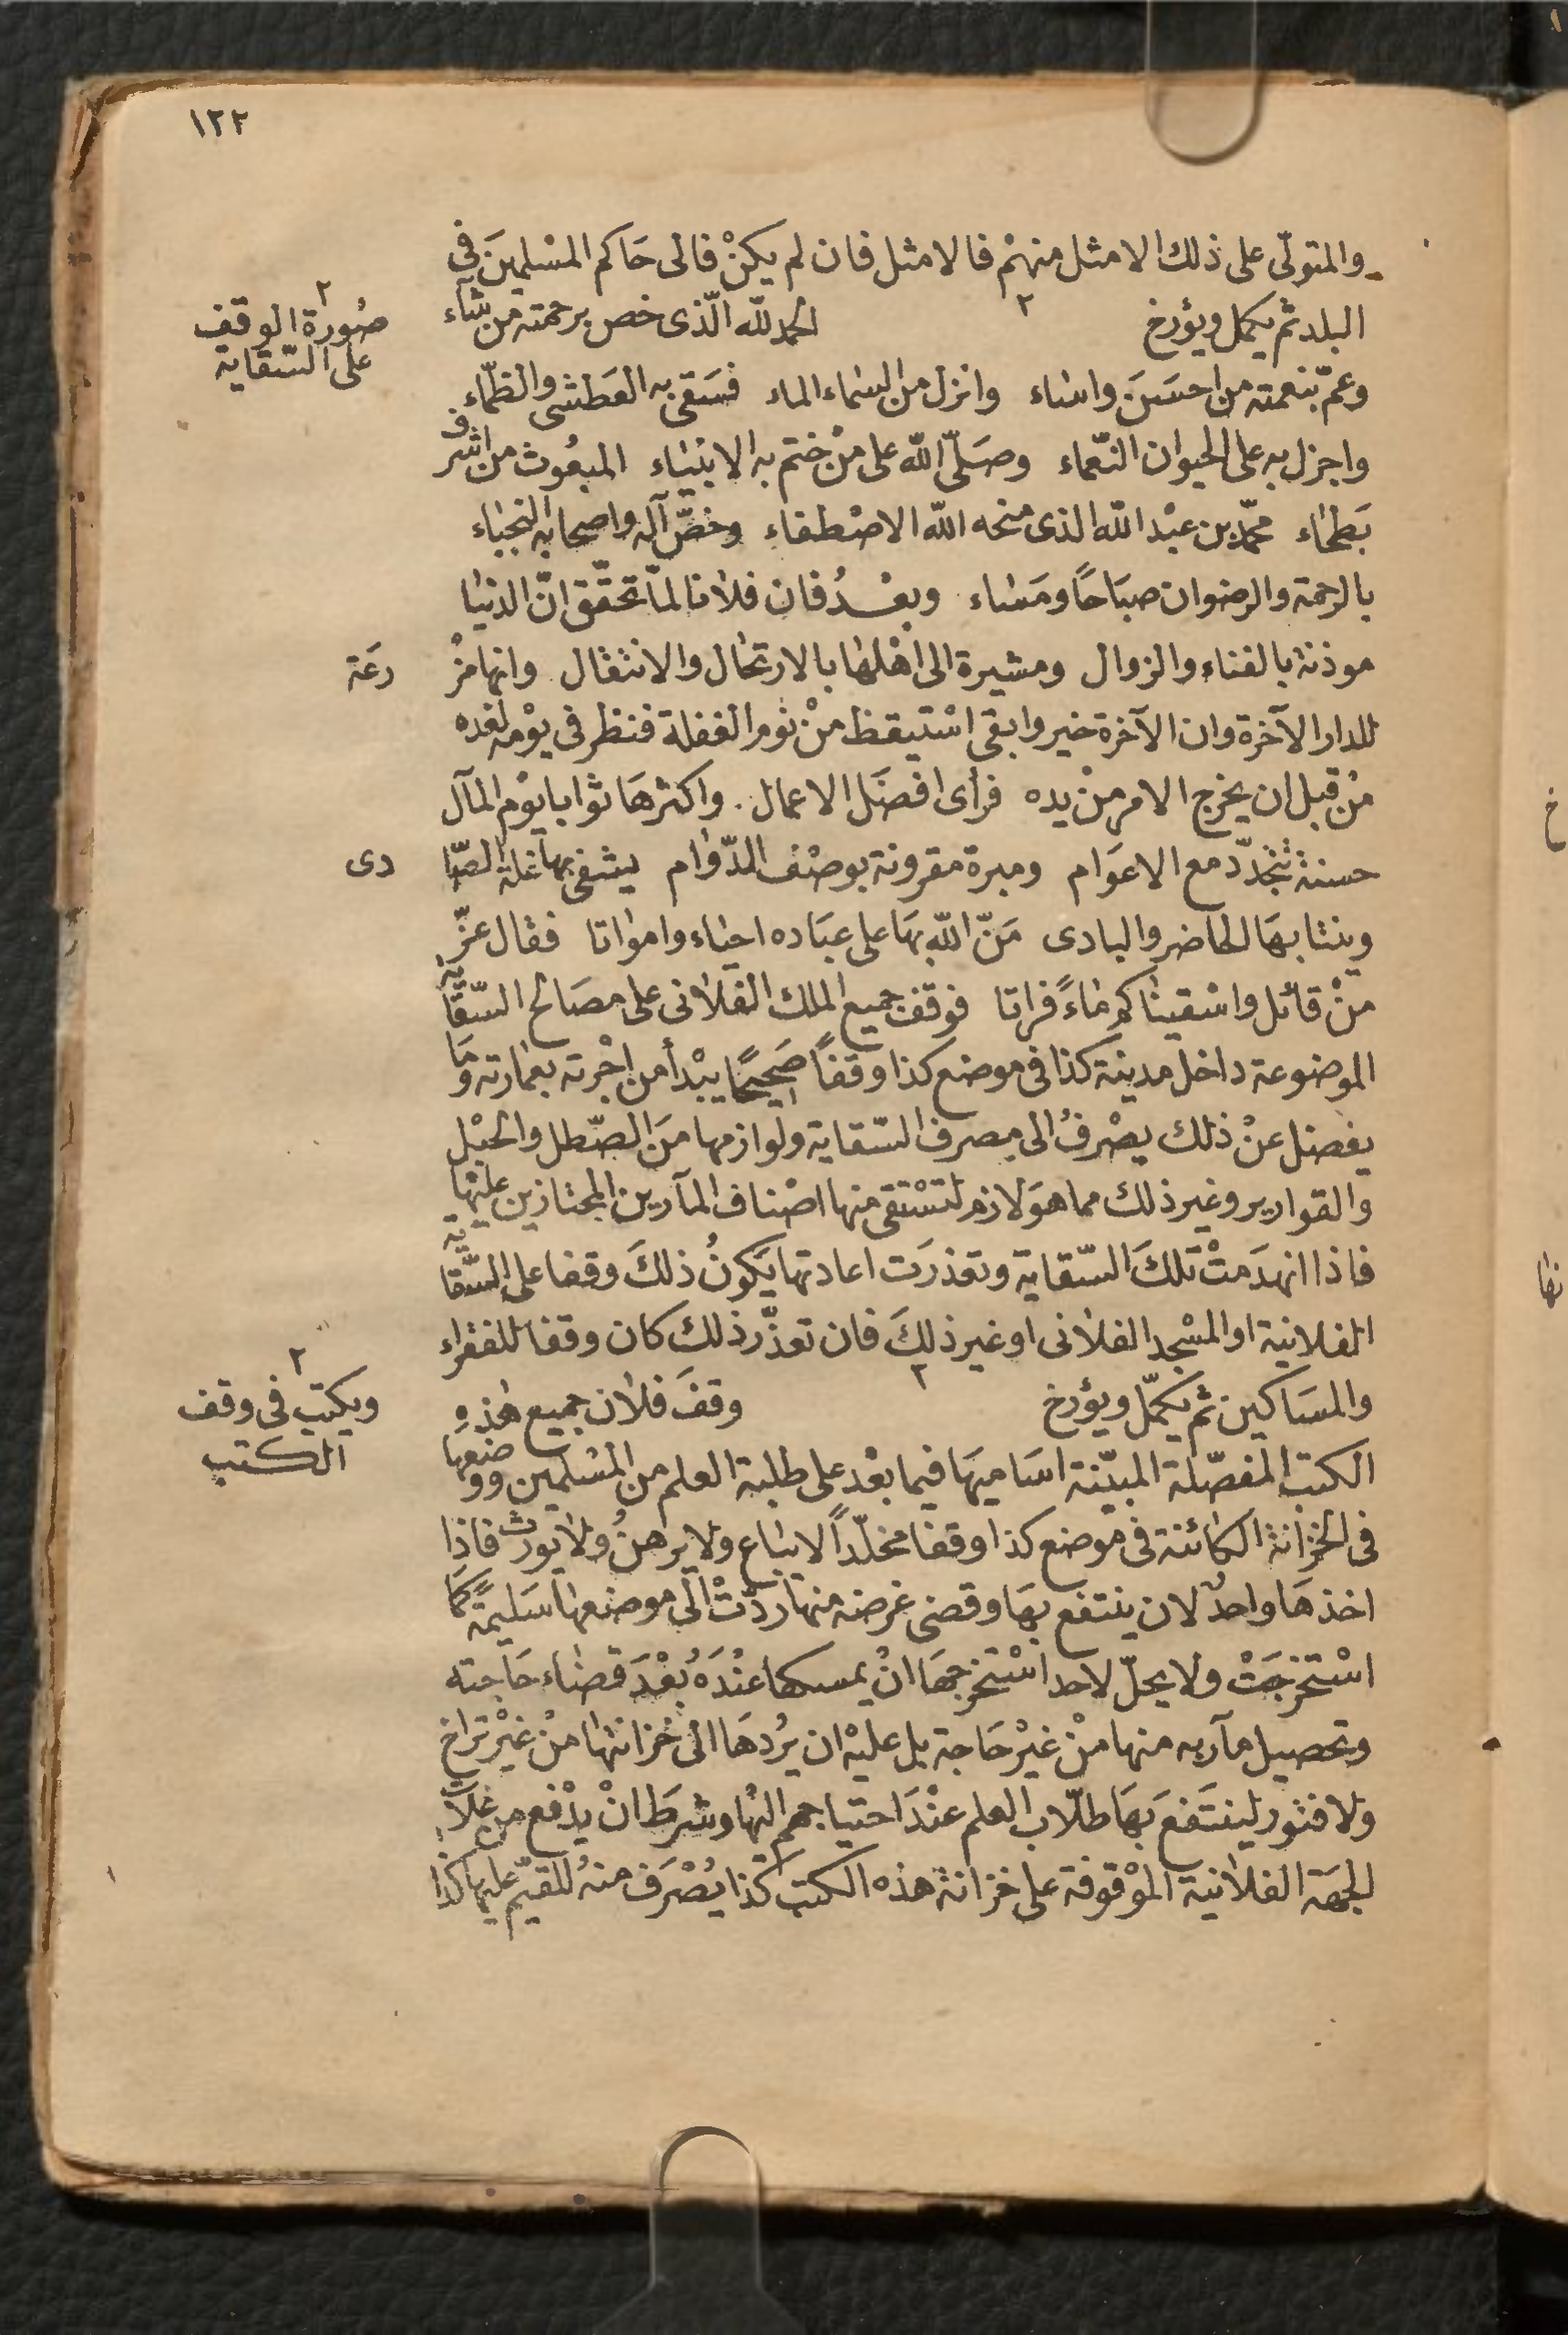 ١٢٢
والمتولّى على ذلك الامثل منهمْ فالامثل فان لم يكنْ فالى حَاكم المسْلمِينَ فى
البلد ثم يكمل ويؤرخ ٢ الحمد لله الّذى خص برحمته من يشآء
صُورة الوقف ٢
على السّقاية
وعمّ بنعمته من احسَنَ واساء وانزل من السماء الماء فسَقى به العَطشى والظمّاء
واجزل به على الحيوان النّعماء وصَلّى الله على منْ ختم به الانبياء المبعُوث من اشرف
بَطحاء محمّد بن عبْد الله الذى منحه الله الاصْطفاء وخصّ آله واصحابه النجباء
بالرحمة والرضوان صبَاحًا ومَساء وبعْدُ فان فلانا لمّا تحقّق انّ الدنيا
موذنة بالفناء والزوال ومشيرة الى اهْلها بالارتحال والانتقال وانها مزْ رعَة
للدار الآخرة وان الآخرة خير وابقى اسْتيقظ منْ نوم الغفلة فنظر فى يوْمه لغده
منْ قبل ان يخرج الامر منْ يده فرأى افضَل الاعمال. واكثرهَا ثوابا يوْم المآل
حسنة تتجدّد مع الاعوَام ومبرة مقرونة بوصْف الدّوام يشفى بها غلة الصّا دى
وينتابهَا الحاضر والبادى مَنّ الله بهَا على عبَاده احياء وامواتا فقال عزّ
منْ قائل واسْقيناكم ماءً فراتا فوقف جميع الملك الفلانى على مصَالح السّقاية
الموضوعة داخل مدينة كذا فى موضع كذا وقفاً صَحِيحًا يبْدأ من اجْرته بعمارته ومَا
يفضل عنْ ذلك يصْرفُ الى مصرف السّقاية ولوازمها منَ الصّطل والحبْل
والقوارير وغير ذلك مما هوَ لازم لتسْتقى منها اصْناف المآرين المجتازين عليْها
فاذا انهدَمتْ تلكَ السّقاية وتعذرَت اعادتها يَكونُ ذلكَ وقفا على السّقاية
الفلانية او المسْجد الفلانى او غير ذلِكَ فان تعذّر ذلك كان وقفا للفقراء
والمسَاكين ثم يكمّل ويؤرخ ٢ وقفَ فلان جميع هذهِ
ويكتب فى وقف ٢
الكتب
الكتب المفصّلة المبيّنة اسَاميهَا فيما بعْد على طلبة العلم من المسْلمين ووضعهَا
فى الخزانة الكائنة فى موضع كذا وقفا مخلّداً لا يباع ولا يرهنُ ولا يورث فاذا
اخذهَا واحدٌ لان ينتفع بهَا وقضى غرضه منها ردّتْ الى موضعها سَليمةً كما
اسْتخرجَتْ ولا يحلّ لاحد اسْتخرجهَا انْ يمسكها عنْدَهُ بعْدَ قضاء حَاجته
وتحصيل مآربه منها منْ غيْر حَاجة بل عليْه ان يرُدهَا الى خزانتها منْ غيْر تراخ
ولا فتور لينتَفعَ بهَا طلّاب العلم عنْدَ احتياجهم اليْها وشرطَ انْ يدْفع من غلّات
الجهَة الفلانية الموْقوفة على خزانة هذه الكتب كذا يُصْرَف منهُ للقيّم عليها كذا